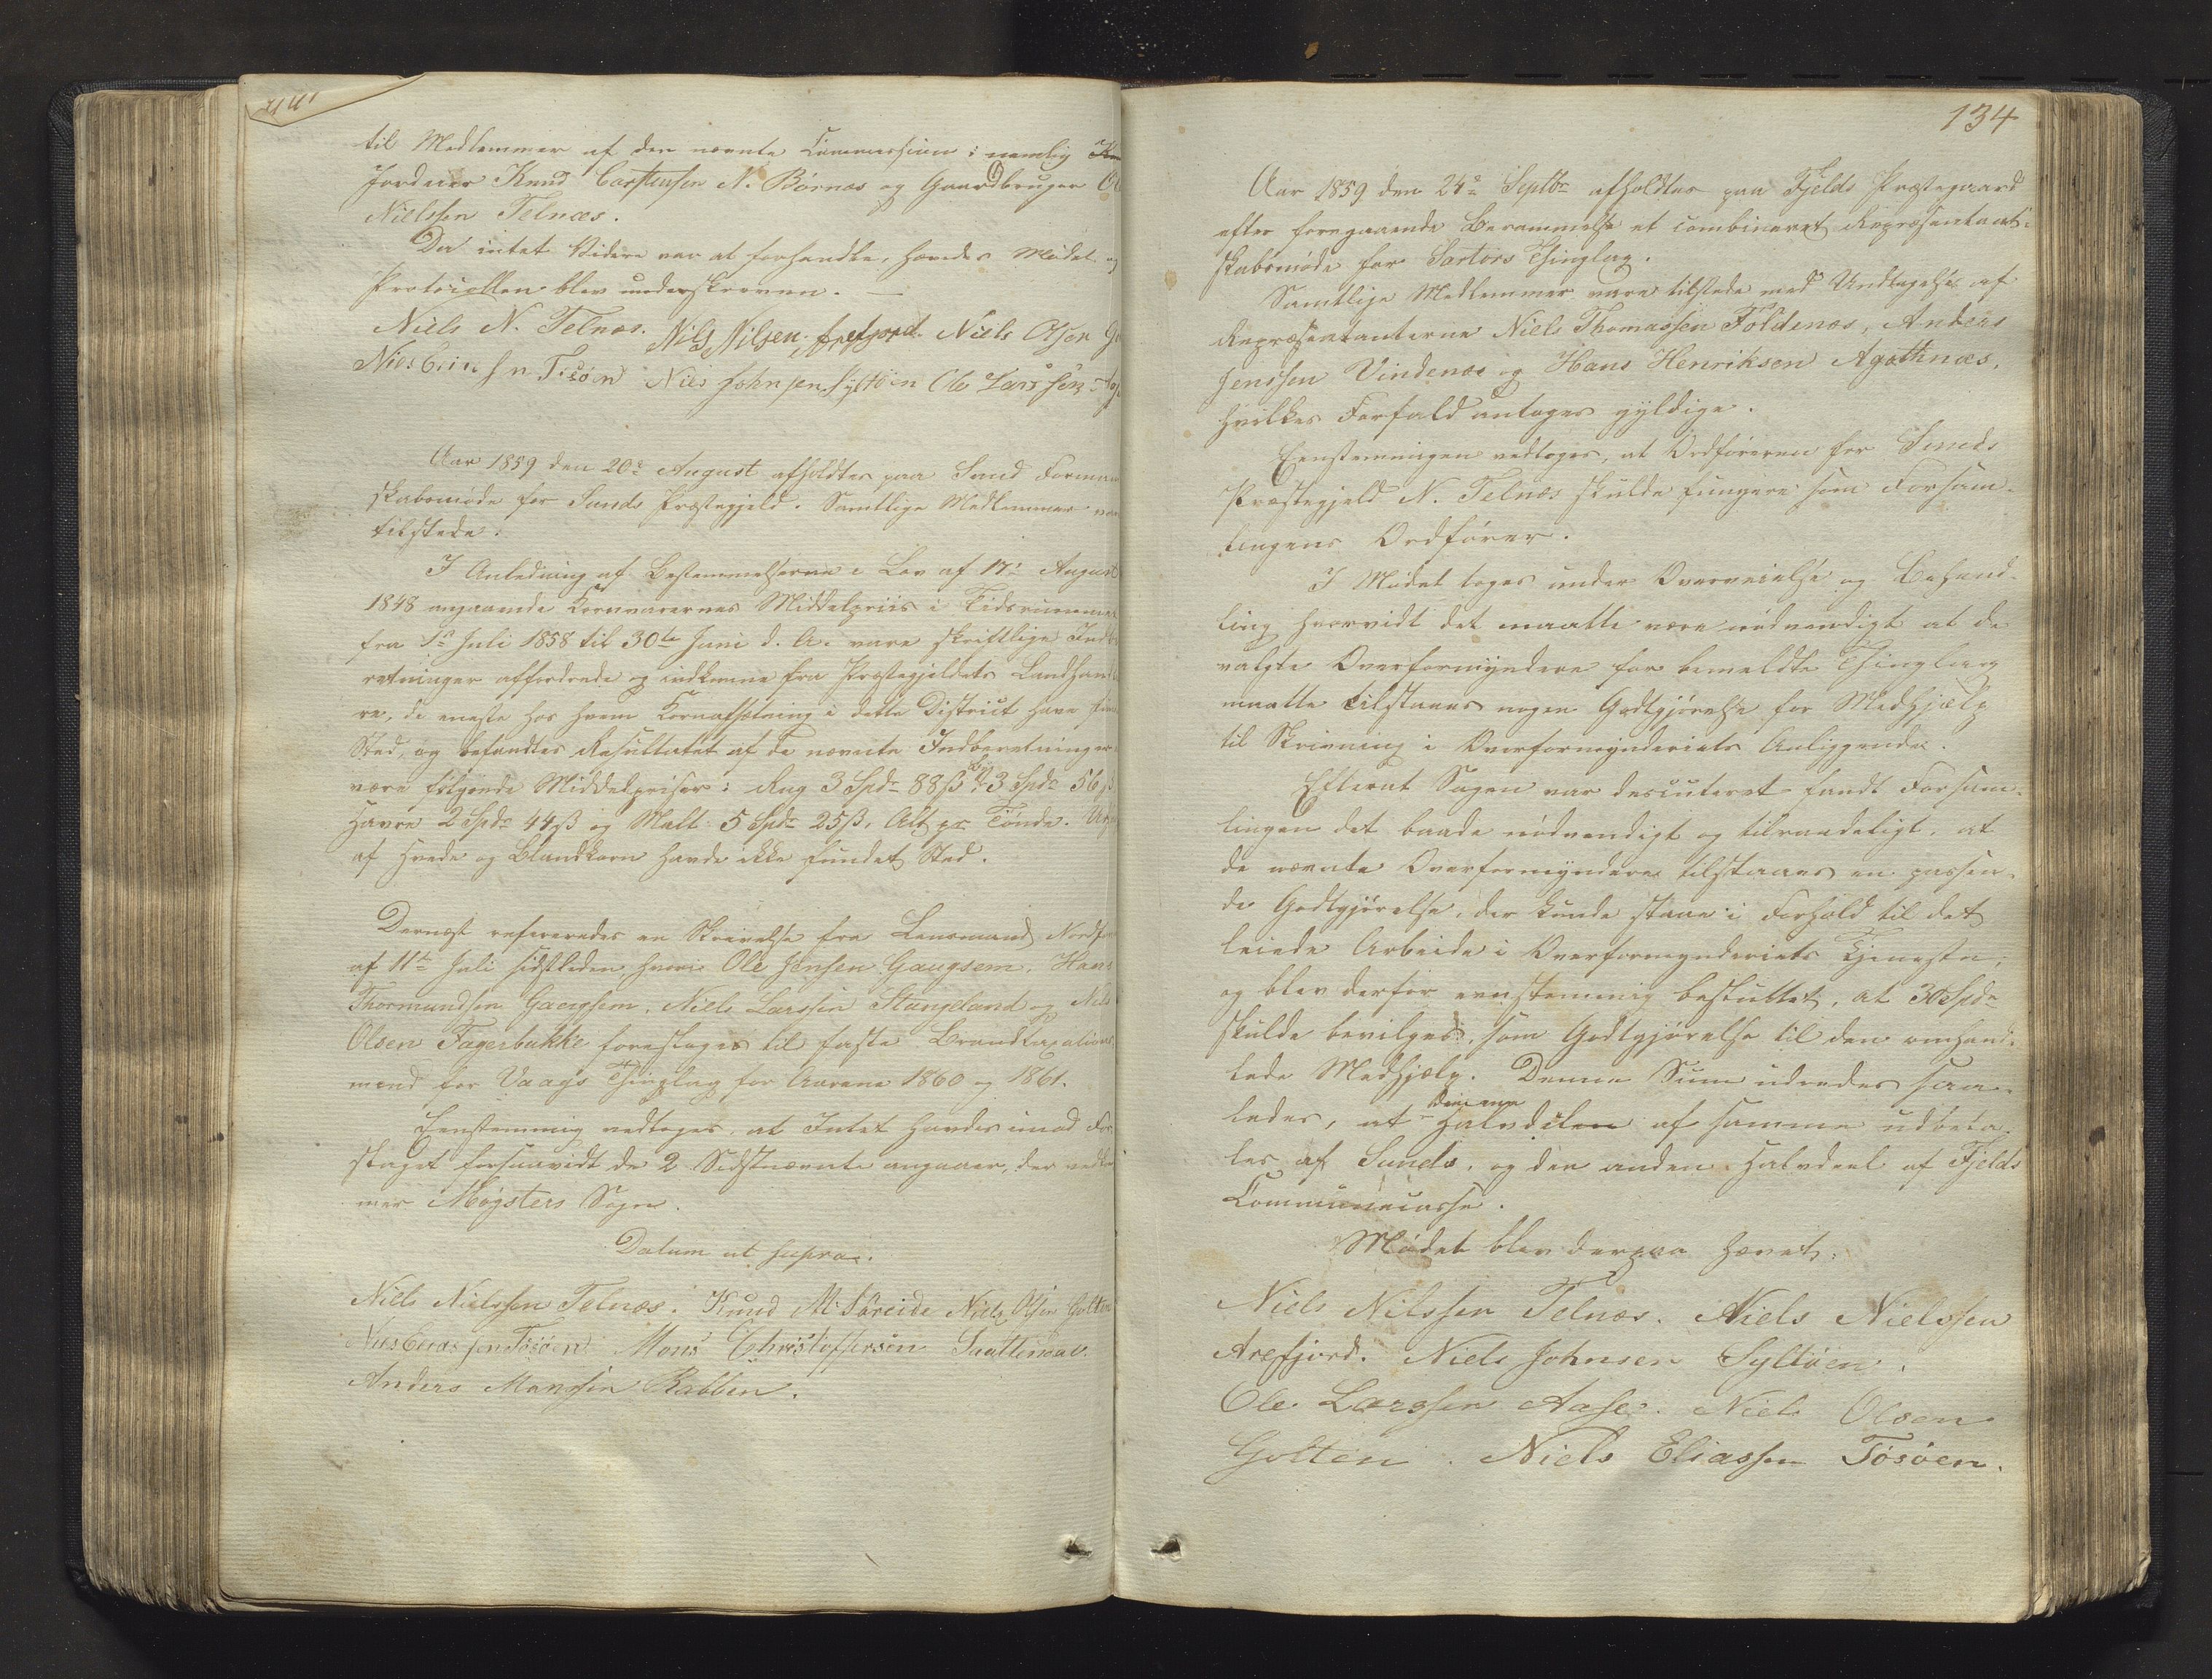 til Medlemmer af den nævnte Commission: nemlig
Jordeier Knud Carstensen N. Børnæs og Gaardbruger Ol
Nielssen Telnæs.
Da intet Videre var at forhandle, hævedes Mødet og
Protocollen blev underskreven. —
Niels N. Telnæs. Nils Nilsen Arefjord. Niels Olsen Go
Niels Johnsen Syltøen Ole Larssen
Aar 1859 den 20de August afholdtes paa Sund Forman
skabsmøde for Sunds Præstegjeld. Samtlige Medlemmer var
tilstede.
I Anledning af Bestemmelserne i Lov af 17de August
1848 angaaende Kornvarernes Middelpriis i Tidsrummet
fra 1ste Juli 1858 til 30te Juni d. A. vare skriftlige Indbe
retninger affordrede og indkomne fra Præstegjeldets Landhand
re, de eneste hos hvem Kornafsætning i dette District have fun
Sted, og befandtes Resultatet af de nævnte Indberetninger
være følgende Middelpriser: Rug 3 Spd 88 ß Byg 3 Spd 56 ß
Havre 2 Spd 44 ß og Malt 5 Spd 25 ß, Alt pr Tønde.
af Hvede og Blandkorn havde ikke fundet Sted.
Dernæst refereredes en Skrivelse fra Lensmand
af 11te Juli sidstleden hvori Ole Jensen Gaugsem, Hans
Thormundsen Gaugsem, Niels Larssen Stangeland og Niels
Olsen Fagerbakke foreslages til faste Brandtaxations
mænd for Vaags Thinglag for Aarene 1860 og 1861.
Eenstemmig vedtoges, at Intet havdes imod For
slaget forsaavidt de 2 Sidstnævnte angaaer, der vedkom
mer Møgsters Sogn.
Datum ut supra.
Niels Nielssen Telnæs. Knud M. Søreide Niels Olsen Golten
Niels Eliassen Tøsøen Mons Christoffersen
Anders Monssen Rabben.
134
Aar 1859 den 24de Septbr afholdtes paa Fjelds Præstegaard
efter foregaaende Berammelse et combineret Repræsentant-
skabsmøde for Sartors Thinglag.
Samtlige Medlemmer vare tilstede med Undtagelse af
Repræsentanterne Niels Thomassen Foldenæs, Anders
Jenssen Vindenæs og Hans Henriksen Agothnæs,
hvilkes Forfald antoges gyldige.
Eenstemmigen vedtoges, at Ordføreren for Sunds
Præstegjeld N. Telnæs skulde fungere som Forsam-
lingens Ordfører.
I Mødet toges under Overveielse og Behand-
ling hvorvidt det maatte være nødvendigt at de
valgte Overformyndere for bemeldte Thinglag
maatte tilstaaes nogen Godtgjørelse for Medhjælp
til Skrivning i Overformynderiets Anliggender.
Efterat Sagen var descuteret fandt Forsam-
lingen det baade nødvendigt og tilraadeligt, at
de nævnte Overformyndere tilstaaes en passen-
de Godtgjørelse, der kunde staae i Forhold til det
leiede Arbeide i Overformynderiets Tjeneste;
og blev derfor eenstemmig besluttet, at 30 Spd
skulde bevilges, som Godtgjørelse til den omhand-
lede Medhjælp. Denne Sum udredes saa-
ledes, at den ene Halvdelen af samme udbeta-
les af Sunds, og den anden Halvdeel af Fjelds
Communecasse.
Mødet blev derpaa hævet.
Niels Nilssen Telnæs. Niels Nielssen
Arefjord. Niels Johnsen Syltøen.
Ole Larssen Aase. Niels Olsen
Golten. Niels Eliassen Tøsøen.